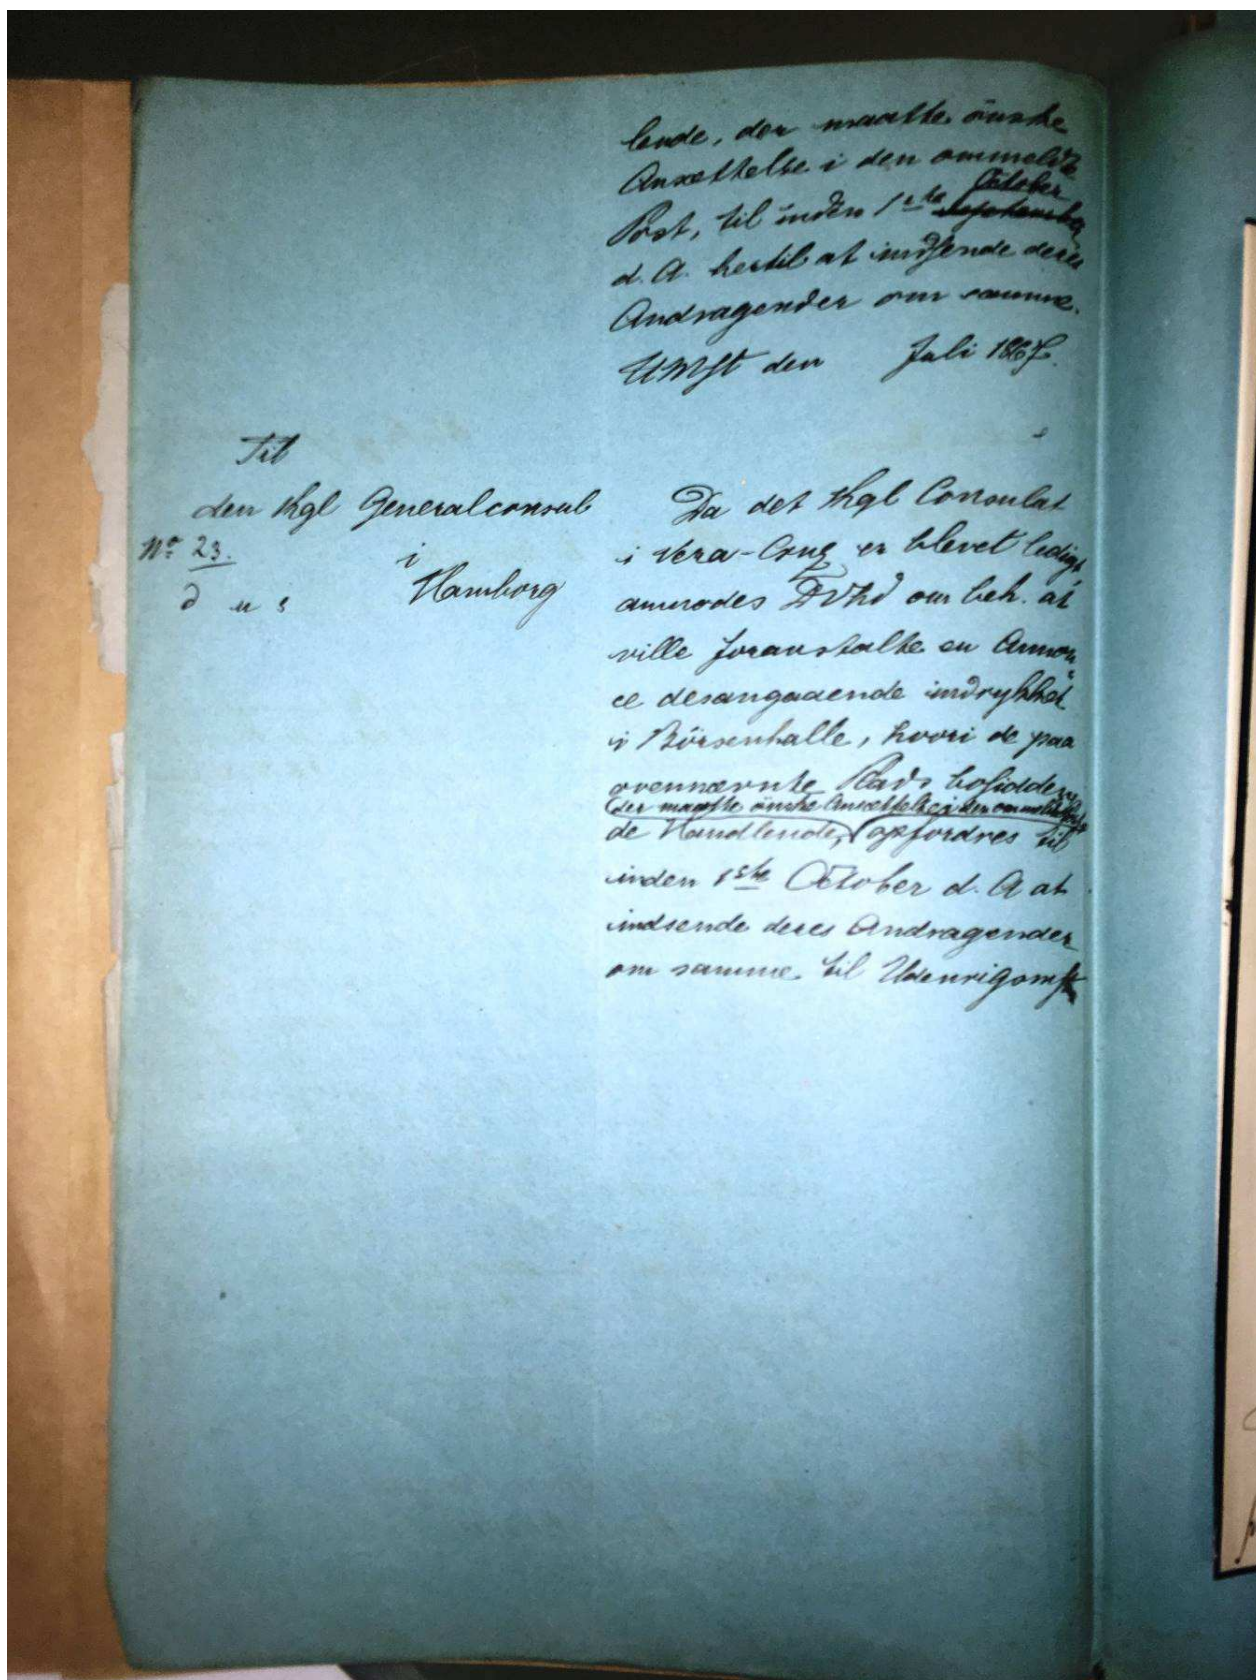 lende, der maatte önske
Ansættelse i den ommeldte
October
Post, til inden 1ste September
d. A. hertil at indsende deres
Andragender om samme.
UMst den Juli 1867.
Til
den Kgl Generalconsul
i
Hamborg
No 23.
d u s
Da det Kgl Consulat
i Vera-Cruz er blevet ledigt
anmodes DVhd om beh. at
ville foranstalte en Annon-
ce desangaaende indrykket
i Börsenhalle, hvori de paa
ovennævnte Plads bosidden-
der maatte önske Ansættelse i den ommeldte Post
de Handlende, opfordres til
inden 1ste October d. A at
indsende deres Andragender
om samme til Udenrigsmst